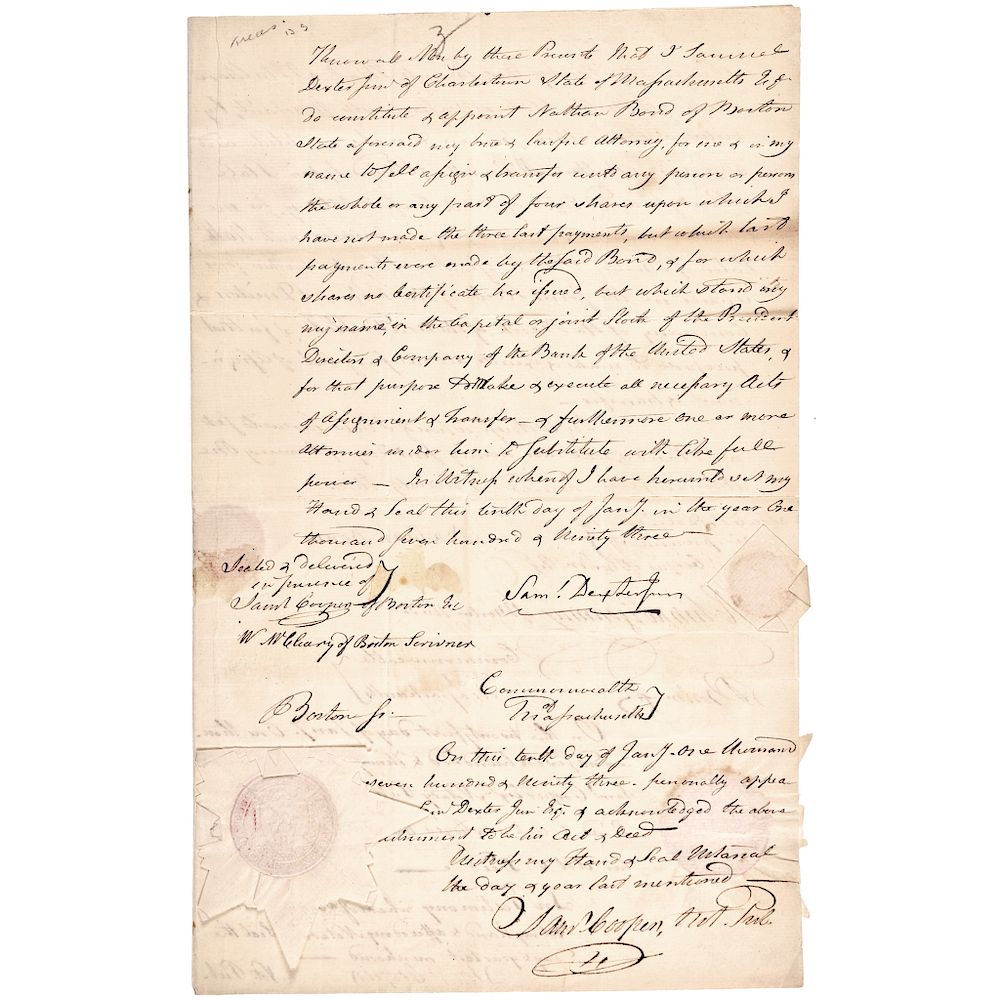 Know all Men by these Presents that I Samuel
Dexter Junr of Charlestown & State of Massachusetts Esq
do constitute & appoint Nathan Bond of Boston
State aforesaid my true & lawful Attorney, for me & in my
name to sell assign & transfer unto any person or persons
the whole or any part of four shares upon which I
have not made the three last payments, but which last
payments were made by the said Bond, & for which
shares no Certificate has issued, but which stand in my
my name, in the Capital or joint Stock of the President
Directors & Company of the Bank of the United States, &
for that purpose to Make & execute all necessary Acts
of Assignment & Transfer – & furthermore one or more
Attornies under him to Substitute with like full
power – In Witness whereof I have hereunto set my
Hand & Seal this tenth day of Jany. in the year One
thousand seven hundred & Ninety three
Sealed & delivered
in presence of
Saml Cooper of Boston Esq
Saml. Dexter Junr
W McCleary of Boston Scrivner
Commonwealth
of Massachusetts
Boston Ss
On this tenth day of Jany. One thousand
seven hundred & Ninety three personally appea
Saml Dexter Junr Esq. & acknowledged the above
to be his Act & Deed
Witness my Hand & Seal Notarial
the day & year last mentioned
Saml. Cooper, Not. Pub.